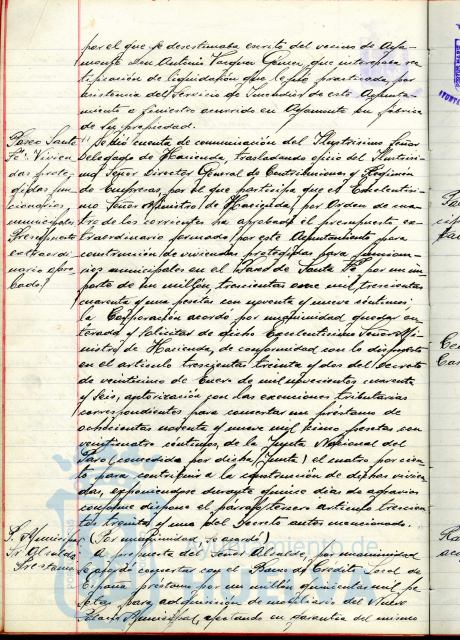 por el que se desestimaba escrito del vecino de Aya-
monte Don Antonio Vazquez Gomez que interesaba rec-
tificación de liquidación que le fué practicada por
asistencia del Servicio de Incendios de este Ayunta-
miento a siniestro ocurrido en Ayamonte en fábrica
de su propiedad.
Paseo Santa
Fe. Vivien
das prote-
gidas fun-
cionarios
municipales.
Presupuesto
extraordi-
nario apro-
bado.
Se dió cuenta de comunicación del Ilustrísimo Señor
Delegado de Hacienda, trasladando oficio del Ilustrísi-
mo Señor Director General de Contribuciones y Régimen
de Empresas, por el que participa que el Excelentísi-
mo Señor Ministro de Hacienda, por Orden de cua-
tro de los corrientes ha aprobado el presupuesto ex-
traordinario formado por este Ayuntamiento para
construcción de viviendas protegidas para funciona-
rios municipales en el Paseo de Santa Fé, por un im-
porte de un millón, trescientas once mil, trescientas
cuarenta y una pesetas con noventa y nueve céntimos;
la Corporación acordó por unanimidad quedar en-
terada y solicitar de dicho Excelentísimo Señor Mi-
nistro de Hacienda, de conformidad con lo dispuesto
en el artículo trescientos treinta y dos del Decreto
de veinticinco de Enero de mil novecientos cuarenta
y seis, autorización con las exenciones tributarias
correspondientes para concertar un préstamo de
ochocientas noventa y nueve mil pesetas con
veinticuatro céntimos, de la Junta Nacional del
Paro (concedida por dicha Junta) el cuatro por cien-
to para contribuir a la construcción de dichas vivien-
das, exponiéndose durante quince días de agravios
conforme dispone el párrafo tercero artículo trescien-
tos treinta y uno del Decreto antes mencionado.
(Por unanimidad, se acordó)
P. Municipal
Sr. Alcalde
Préstamo
A propuesta del Señor Alcalde, por unanimidad
se acordó concertar con el Banco de Crédito Local de
España préstamo por un millón quinientas mil pe-
setas para adquisición de mobiliario del Nuevo
Palacio Municipal, aportando en garantía del mismo
Ayuntamiento de
HUELVA